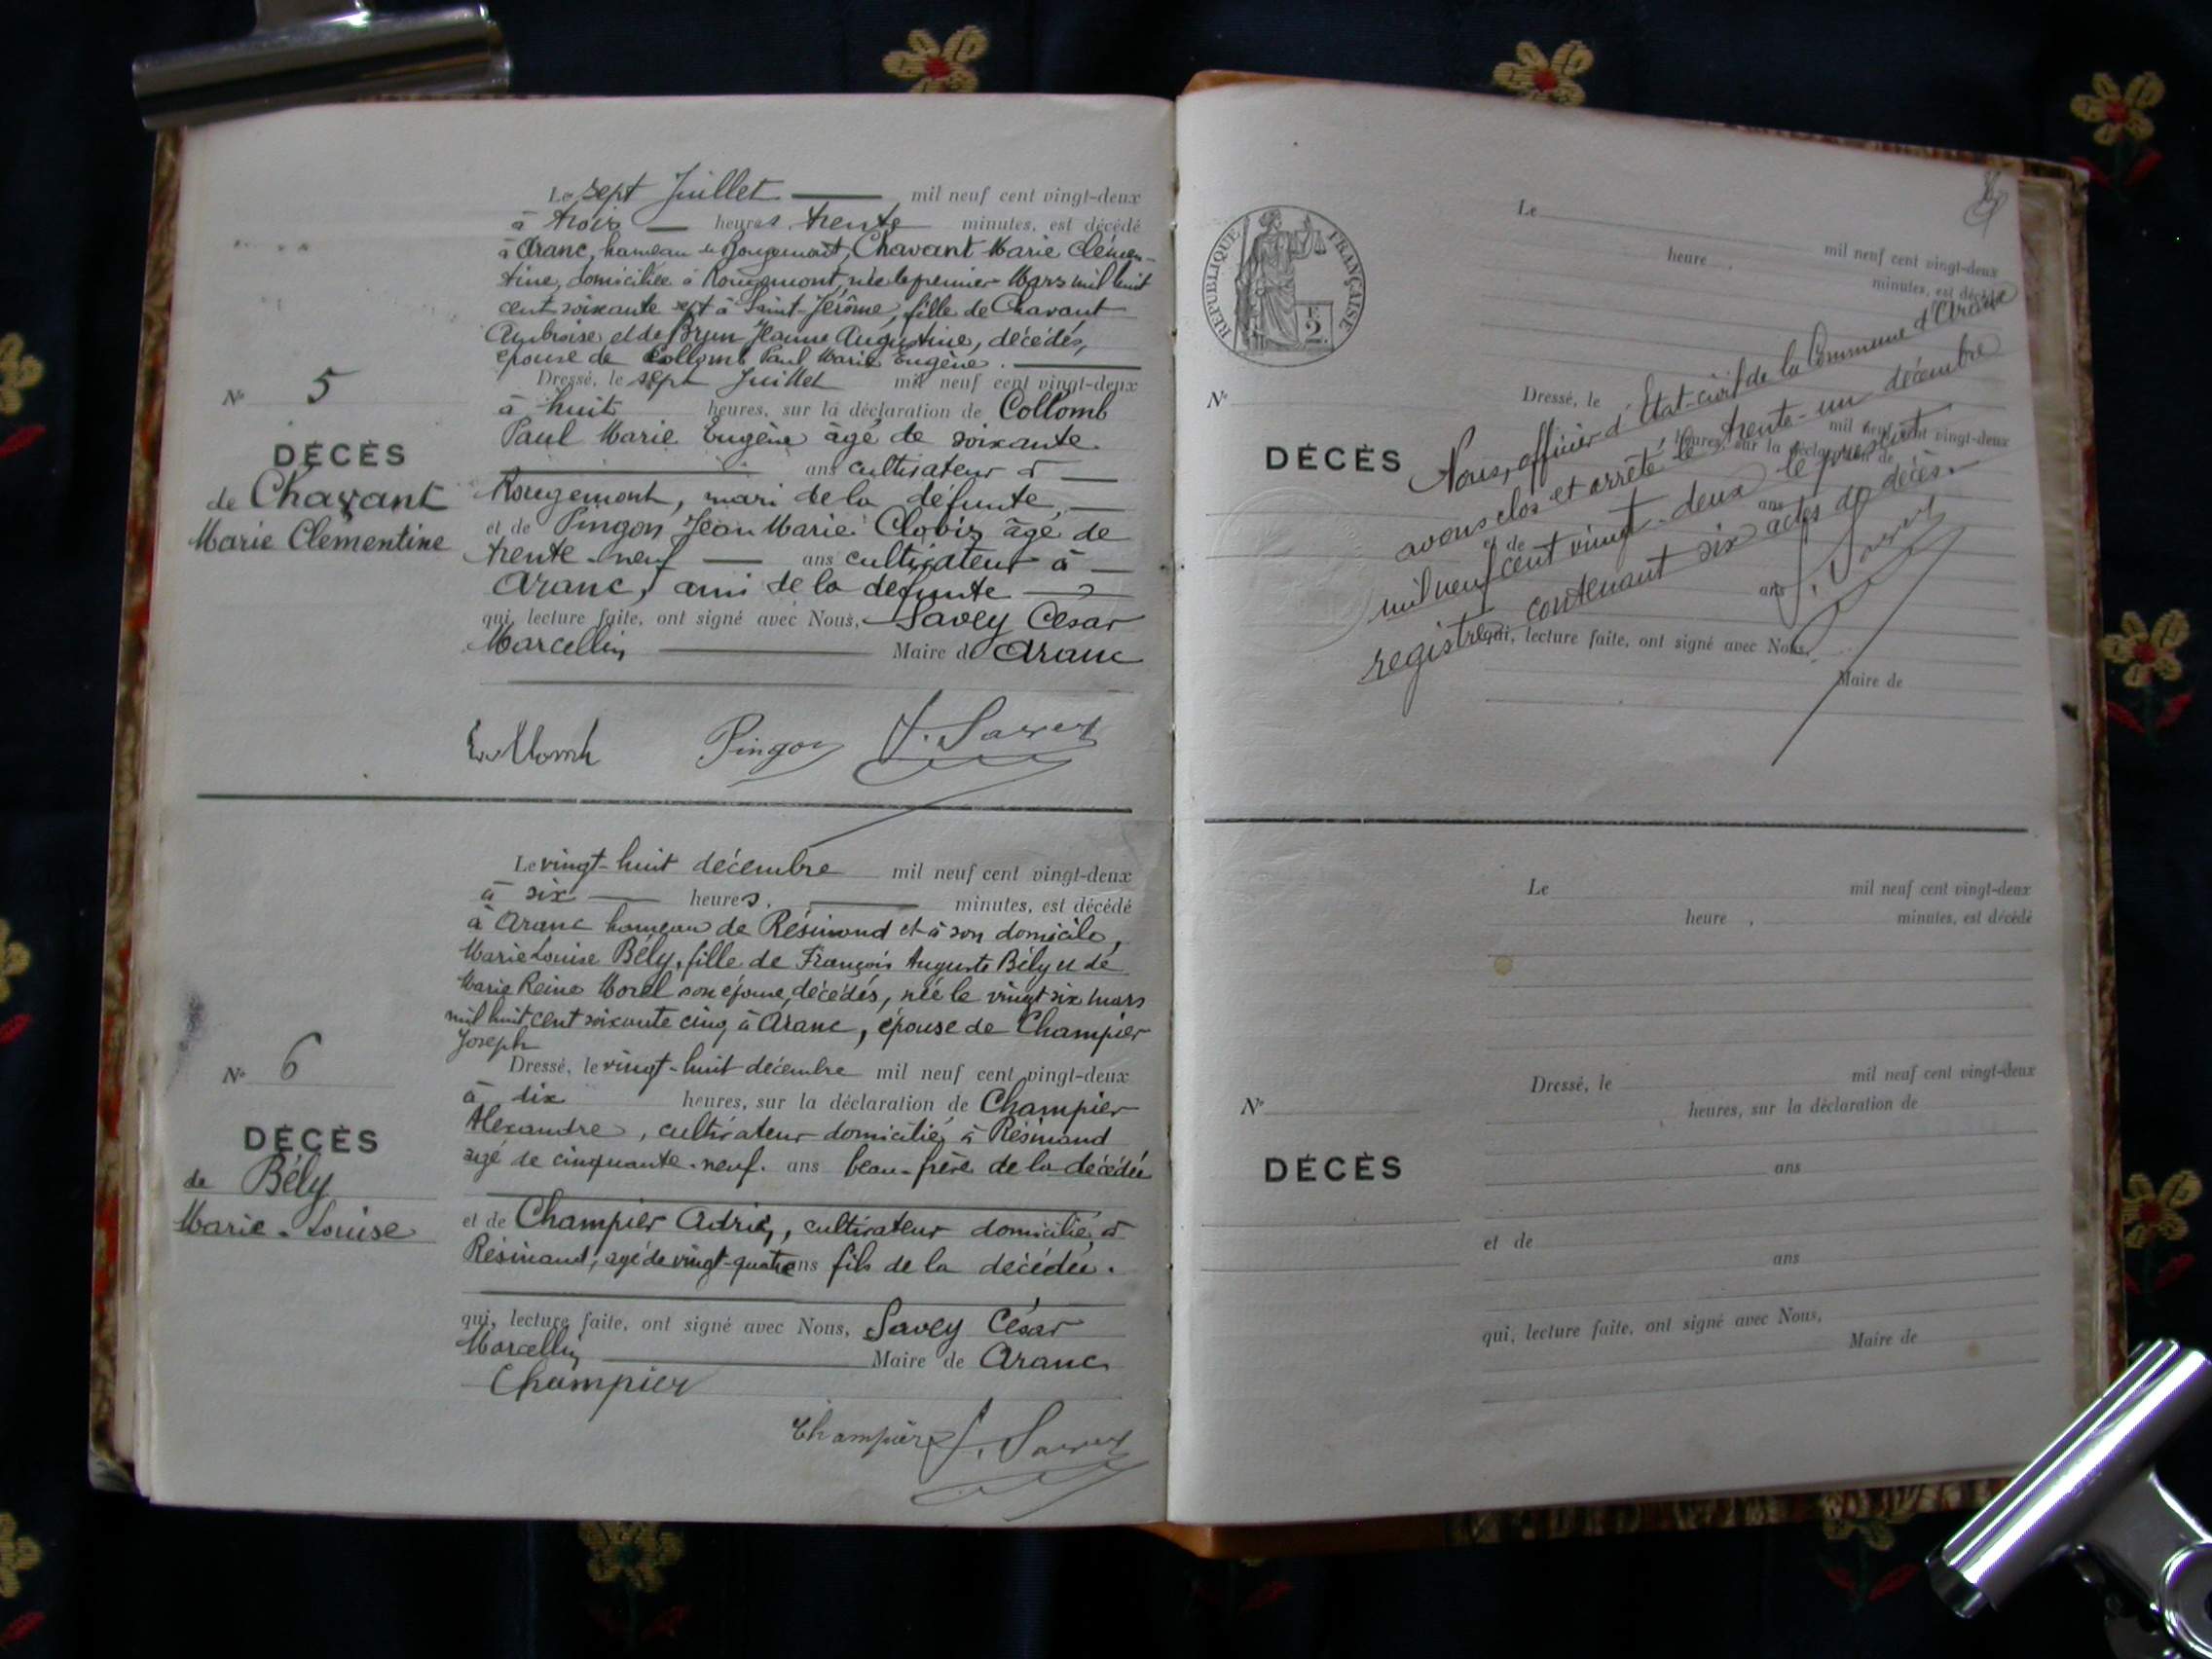 Le sept Juillet mil neuf cent vingt-deux
à trois heures trente minutes, est décédé
à Aranc, hameau de Rougemont, Chavant Marie Clémen-
tine, domiciliée à Rougemont, née le premier Mars mil huit
cent soixante sept à Saint-Jérôme, fille de Chavant
Ambroise et de Brun Jeanne Augustine, décédés,
épouse de Collomb Paul Marie Eugène.
Dressé, le sept Juillet mil neuf cent vingt-deux
à huit heures, sur la déclaration de Collomb
Paul Marie Eugène âgé de soixante
ans cultivateur à
Rougemont, mari de la défunte,
et de Pingon Jean Marie Clovis âgé de
trente-neuf ans cultivateur à
Aranc, ami de la défunte
qui, lecture faite, ont signé avec Nous, Savey César
Marcellin Maire de Aranc
N° 5
DÉCÈS
de Chavant
Marie Clementine
Collomb Pingon J. Savey
Le vingt-huit décembre mil neuf cent vingt-deux
à six heures, minutes, est décédé
à Aranc hameau de Résinand et à son domicile,
Marie Louise Bély, fille de François Auguste Bély et de
Marie Reine Morel son épouse, décédés, née le vingt six mars
mil huit cent soixante cinq à Aranc, épouse de Champier
Joseph
Dressé, le vingt-huit décembre mil neuf cent vingt-deux
à dix heures, sur la déclaration de Champier
Alexandre, cultivateur domicilié à Résinand
agé de cinquante-neuf ans beau-frère de la décédée
et de Champier Adrien, cultivateur domicilié à
Résinand, agé de vingt-quatre ans fils de la décédée.
qui, lecture faite, ont signé avec Nous, Savey César
Marcellin Maire de Aranc
Champier
Champier J. Savey
N° 6
DÉCÈS
de Bély
Marie-Louise
RÉPUBLIQUE FRANÇAISE
F.
2.
Le mil neuf cent vingt-deux
heure , minutes, est décédé
N°
DÉCÈS
Dressé, le mil neuf cent vingt-deux
heures, sur la déclaration de
ans
et de
ans
qui, lecture faite, ont signé avec Nous,
Maire de
Nous, officier d'Etat-civil de la Commune d'Aranc
avons clos et arrêté le trente-un décembre
mil neuf cent vingt-deux le présent
registre contenant six actes de décès.
J. Savey
Le mil neuf cent vingt-deux
heure , minutes, est décédé
N°
DÉCÈS
Dressé, le mil neuf cent vingt-deux
heures, sur la déclaration de
ans
et de
ans
qui, lecture faite, ont signé avec Nous,
Maire de